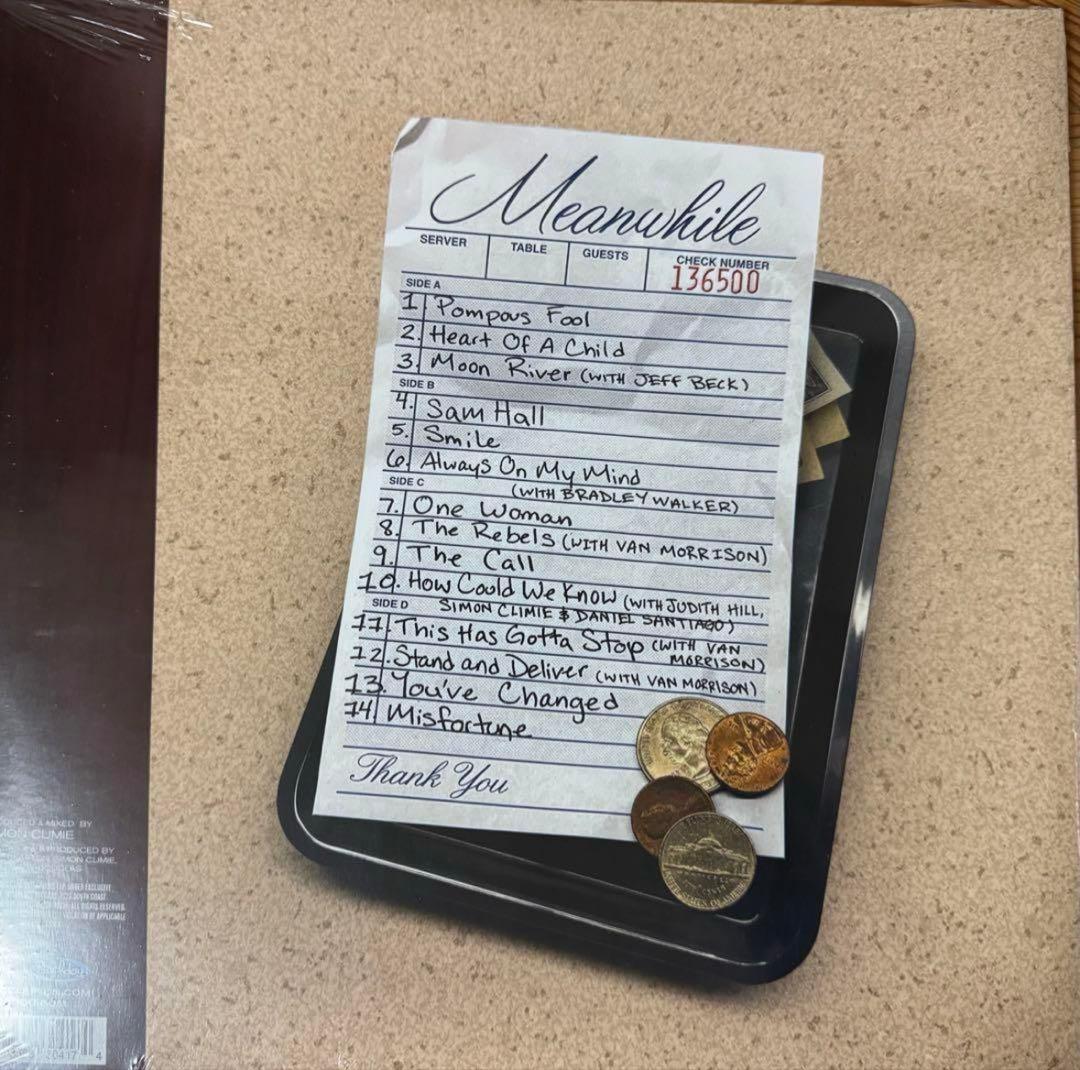 Meanwhile
SERVER TABLE GUESTS CHECK NUMBER
136500
SIDE A
1 Pompous Fool
2. Heart Of A Child
3. Moon River (WITH JEFF BECK)
SIDE B
4. Sam Hall
5. Smile
6. Always On My Mind
(WITH BRADLEY WALKER)
SIDE C
7. One Woman
8. The Rebels (WITH VAN MORRISON)
9. The Call
10. How Could We Know (WITH JUDITH HILL,
SIDE D SIMON CLIMIE & DANIEL SANTIAGO)
11 This Has Gotta Stop (WITH VAN
MORRISON)
12. Stand and Deliver (WITH VAN MORRISON)
13. You've Changed
14 Misfortune
Thank You
& MIXED BY
CLIMIE
PRODUCED BY
SIMON CLIMIE,
EXCLUSIVE
SOUTH COAST
ALL RIGHTS RESERVED.
OF APPLICABLE
.COM
20417 4